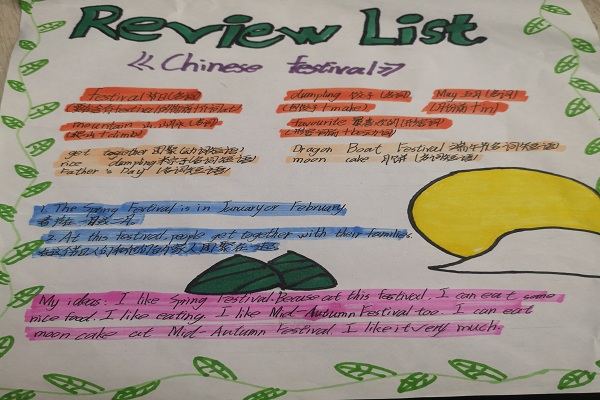 Review List
《Chinese festival》
festival 节日(名词)
mountain 山,山脉(名词)
get together 团聚(动词短语)
rice dumpling 粽子(名词短语)
Father's Day (名词短语)
dumpling 饺子(名词)
+ make)
favourite
May 五月(名词)
Dragon Boat Festival 端午节(名词短语)
moon cake 月饼(名词短语)
1. The Spring Festival is in January or February.
春节在一月或二月。
2. At this festival, people get together with their families.
在这个节日,人们和他们的家人团聚在一起。
My ideas: I like Spring Festival. Becuse at this festival. I can eat some
nice food. I like eating. I like Mid-Autumn Festival too. I can eat
moon cake at Mid-Autumn Festival. I like it very much.